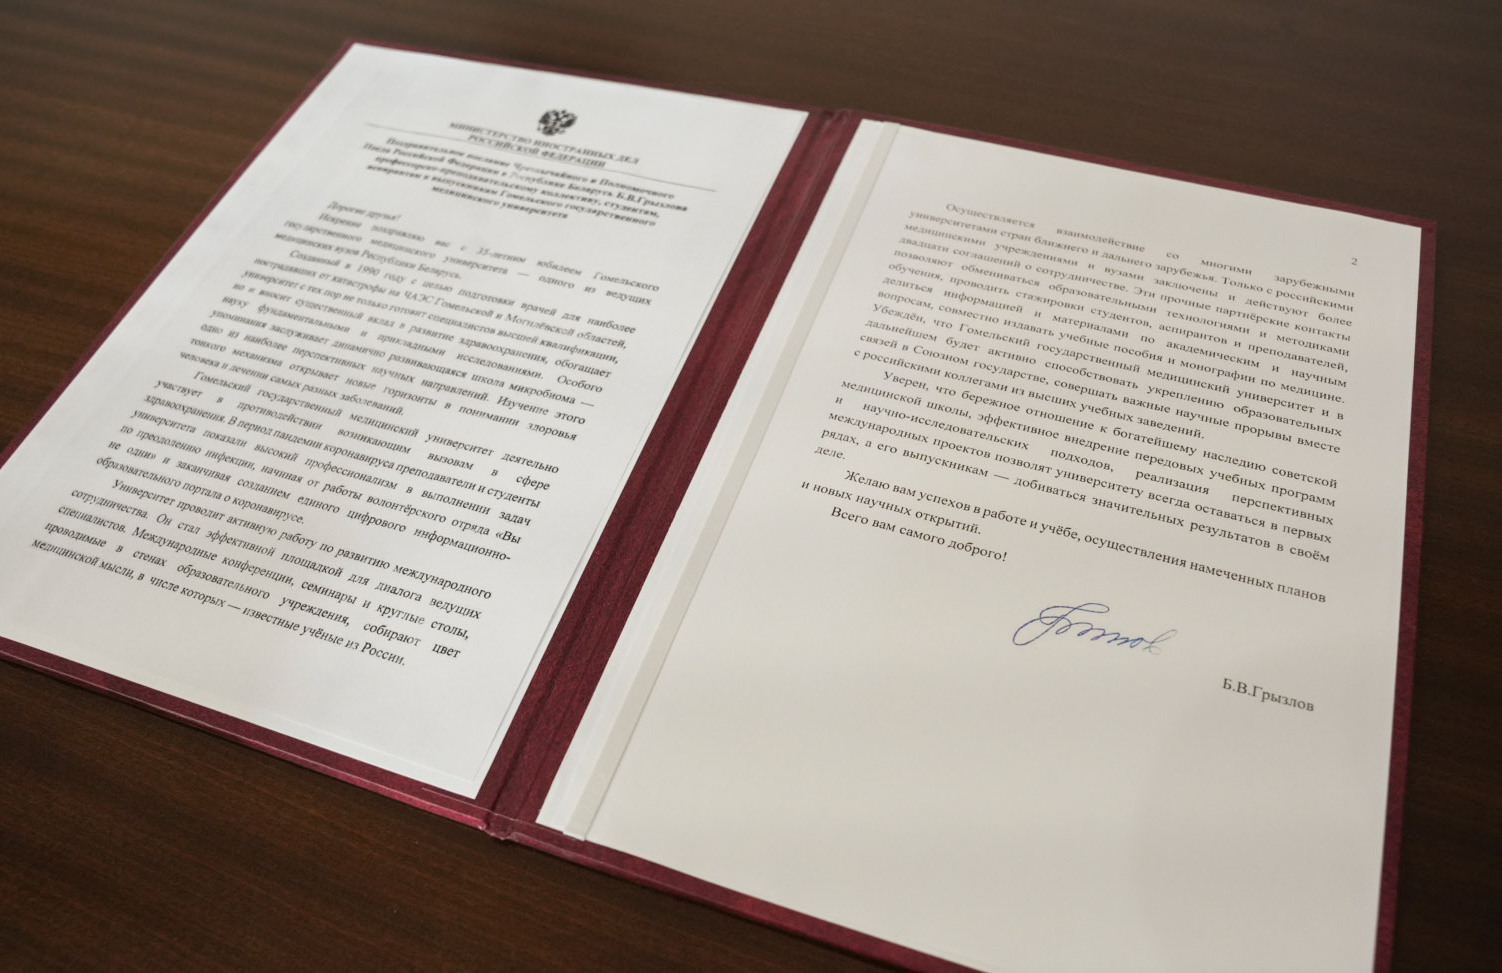 МИНИСТЕРСТВО ИНОСТРАННЫХ ДЕЛ
РОССИЙСКОЙ ФЕДЕРАЦИИ
Поздравительное послание Чрезвычайного и Полномочного
Посла Российской Федерации в Республике Беларусь Б.В.Грызлова
профессорско-преподавательскому коллективу, студентам,
аспирантам и выпускникам Гомельского государственного
медицинского университета
Дорогие друзья!
Искренне поздравляю вас с 35-летним юбилеем Гомельского
государственного медицинского университета — одного из ведущих
медицинских вузов Республики Беларусь.
Созданный в 1990 году с целью подготовки врачей для наиболее
пострадавших от катастрофы на ЧАЭС Гомельской и Могилёвской областей,
университет с тех пор не только готовит специалистов высшей квалификации,
но и вносит существенный вклад в развитие здравоохранения, обогащает
науку фундаментальными и прикладными исследованиями. Особого
упоминания заслуживает динамично развивающаяся школа микробиома —
одно из наиболее перспективных научных направлений. Изучение этого
тонкого механизма открывает новые горизонты в понимании здоровья
человека и лечении самых разных заболеваний.
Гомельский государственный медицинский университет деятельно
участвует в противодействии возникающим вызовам в сфере
здравоохранения. В период пандемии коронавируса преподаватели и студенты
университета показали высокий профессионализм в выполнении задач
по преодолению инфекции, начиная от работы волонтёрского отряда «Вы
не одни» и заканчивая созданием единого цифрового информационно-
образовательного портала о коронавирусе.
Университет проводит активную работу по развитию международного
сотрудничества. Он стал эффективной площадкой для диалога ведущих
специалистов. Международные конференции, семинары и круглые столы,
проводимые в стенах образовательного учреждения, собирают цвет
медицинской мысли, в числе которых — известные учёные из России.
2
Осуществляется взаимодействие со многими зарубежными
университетами стран ближнего и дальнего зарубежья. Только с российскими
медицинскими учреждениями и вузами заключены и действуют более
двадцати соглашений о сотрудничестве. Эти прочные партнёрские контакты
позволяют обмениваться образовательными технологиями и методиками
обучения, проводить стажировки студентов, аспирантов и преподавателей,
делиться информацией и материалами по академическим и научным
вопросам, совместно издавать учебные пособия и монографии по медицине.
Убеждён, что Гомельский государственный медицинский университет и в
дальнейшем будет активно способствовать укреплению образовательных
связей в Союзном государстве, совершать важные научные прорывы вместе
с российскими коллегами из высших учебных заведений.
Уверен, что бережное отношение к богатейшему наследию советской
медицинской школы, эффективное внедрение передовых учебных программ
и научно-исследовательских подходов, реализация перспективных
международных проектов позволят университету всегда оставаться в первых
рядах, а его выпускникам — добиваться значительных результатов в своём
деле.
Желаю вам успехов в работе и учёбе, осуществления намеченных планов
и новых научных открытий.
Всего вам самого доброго!
Б.В.Грызлов